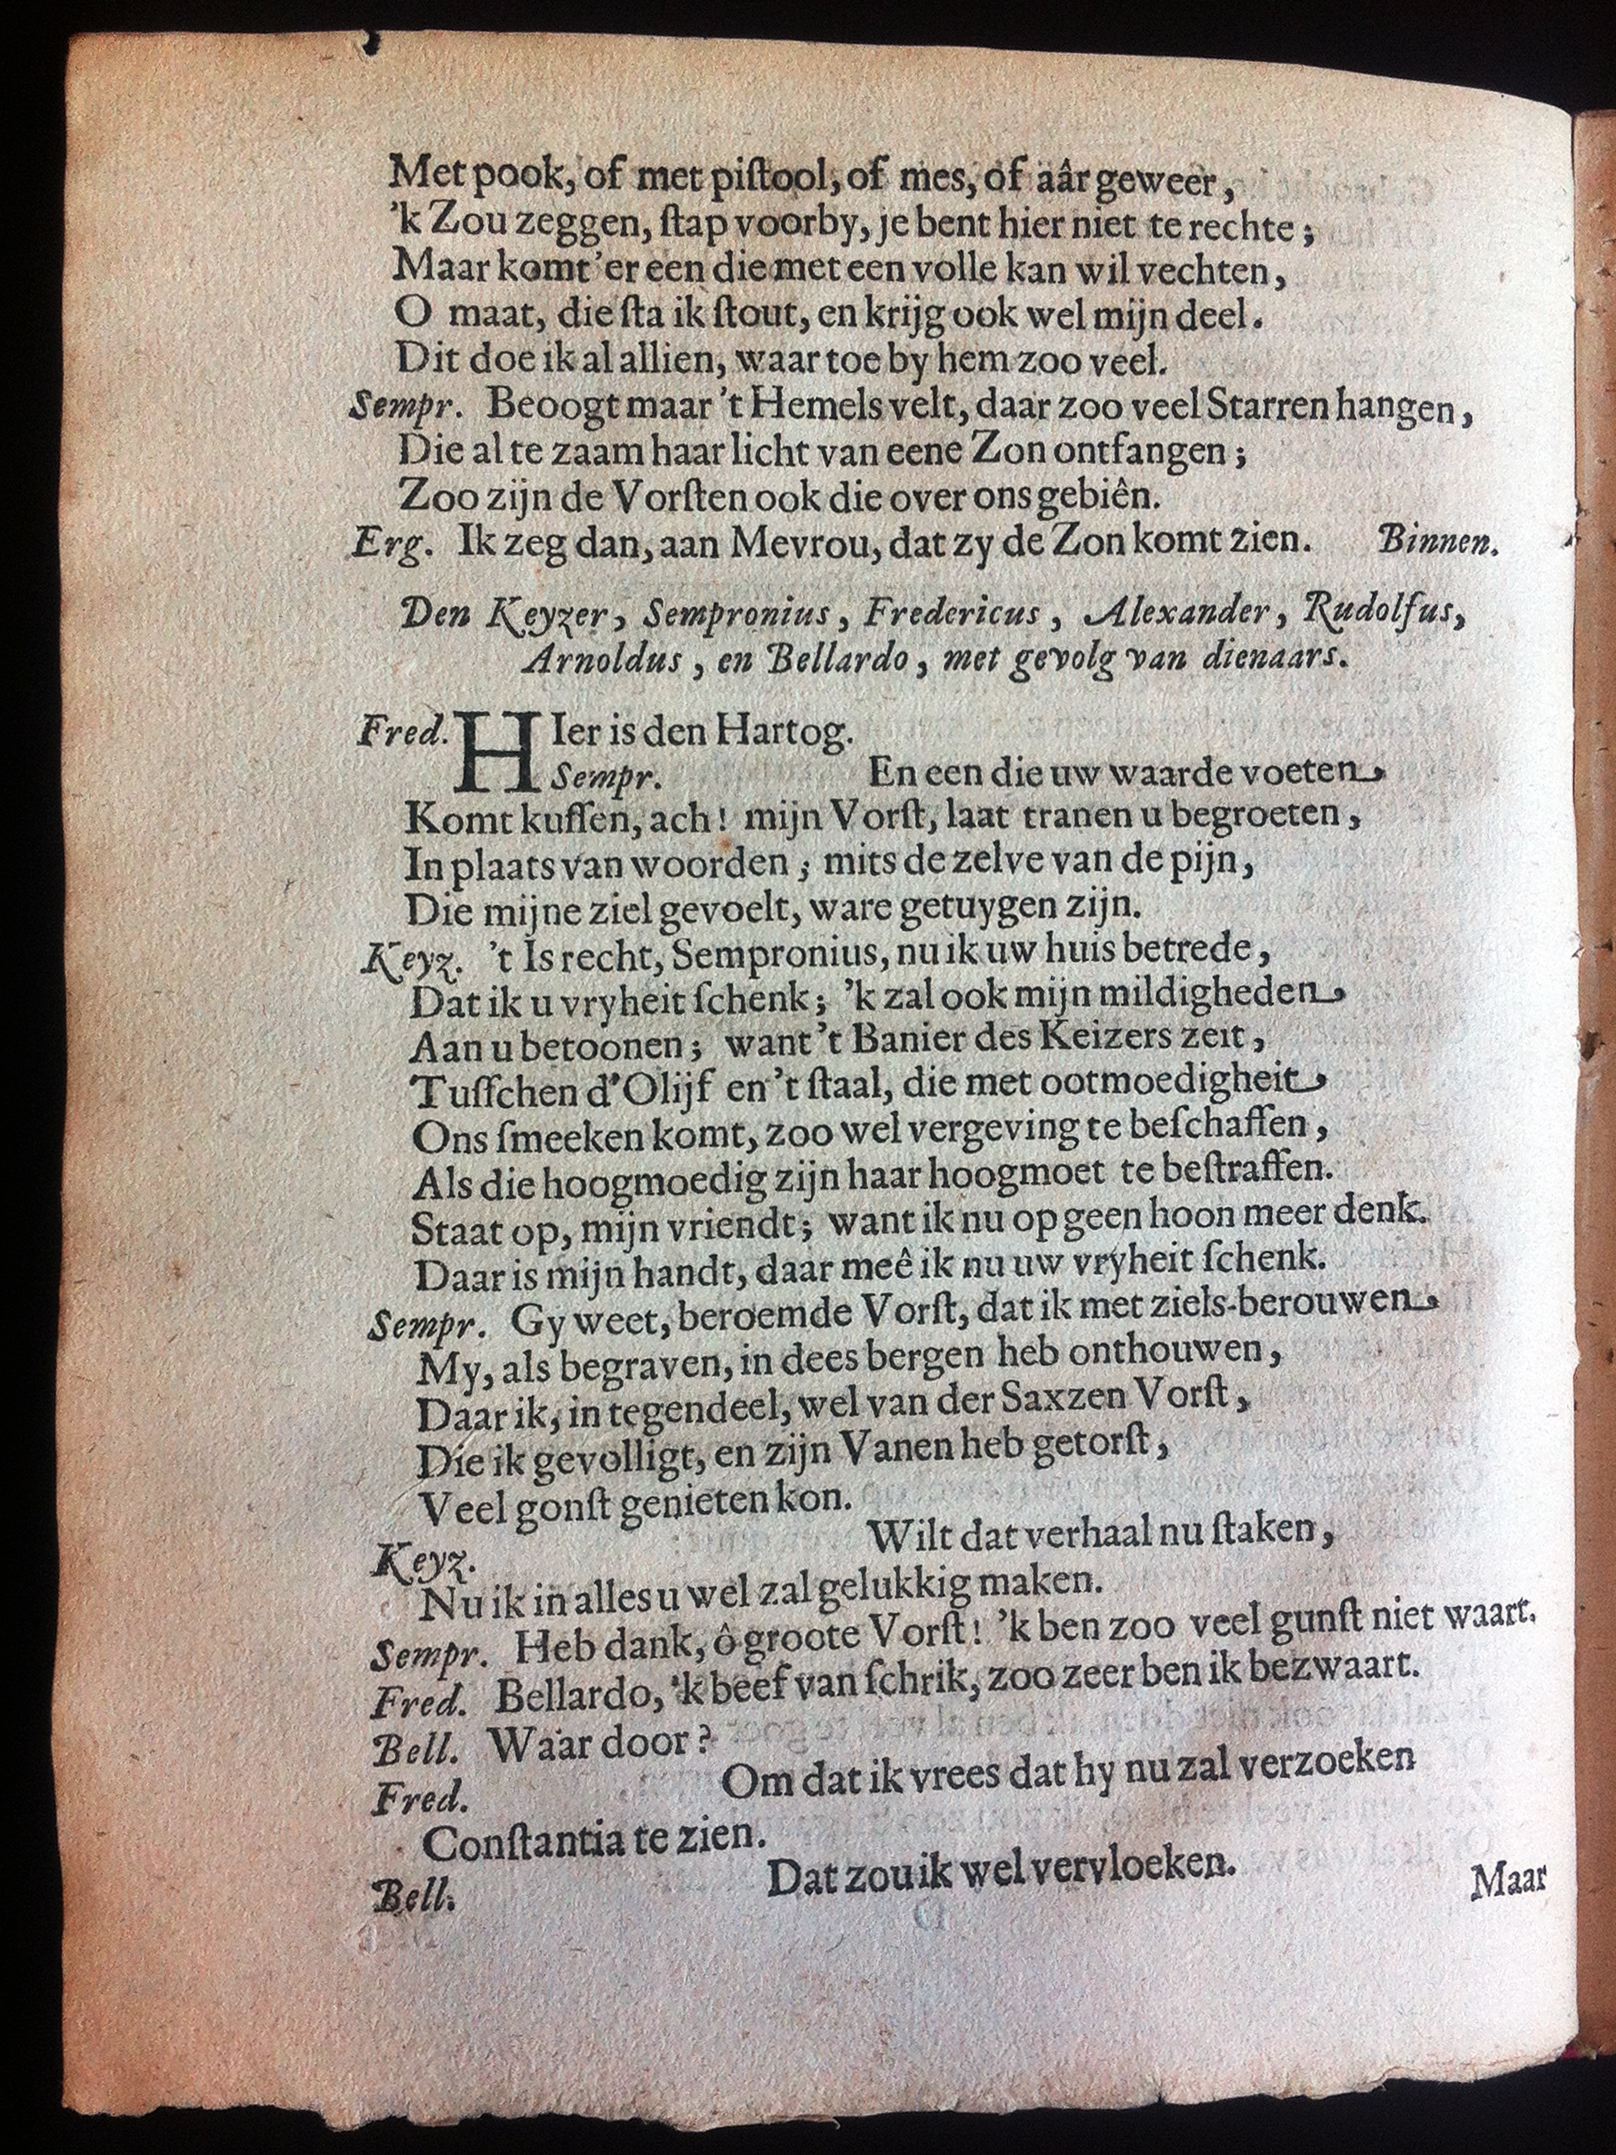 Met pook, of met piſtool, of mes, of aâr geweer,
'k Zou zeggen, ſtap voorby, je bent hier niet te rechte;
Maar komt'er een die met een volle kan wil vechten,
O maat, die ſta ik ſtout, en krijg ook wel mijn deel.
Dit doe ik al allien, waar toe by hem zoo veel.
Sempr. Beoogt maar 't Hemels velt, daar zoo veel Starren hangen,
Die al te zaam haar licht van eene Zon ontfangen;
Zoo zijn de Vorſten ook die over ons gebiên.
Erg. Ik zeg dan, aan Mevrou, dat zy de Zon komt zien. Binnen.
Den Keyzer, Sempronius, Fredericus, Alexander, Rudolfus,
Arnoldus, en Bellardo, met gevolg van dienaars.
Fred. HIer is den Hartog.
Sempr. En een die uw waarde voeten
Komt kuſſen, ach! mijn Vorſt, laat tranen u begroeten,
In plaats van woorden; mits de zelve van de pijn,
Die mijne ziel gevoelt, ware getuygen zijn.
Keyz. 't Is recht, Sempronius, nu ik uw huis betrede,
Dat ik u vryheit ſchenk; 'k zal ook mijn mildigheden
Aan u betoonen; want 't Banier des Keizers zeit,
Tuſſchen d'Olijf en 't ſtaal, die met ootmoedigheit
Ons ſmeeken komt, zoo wel vergeving te beſchaffen,
Als die hoogmoedig zijn haar hoogmoet te beſtraffen.
Staat op, mijn vriendt; want ik nu op geen hoon meer denk.
Daar is mijn handt, daar meê ik nu uw vryheit ſchenk.
Sempr. Gy weet, beroemde Vorſt, dat ik met ziels-berouwen
My, als begraven, in dees bergen heb onthouwen,
Daar ik, in tegendeel, wel van der Saxzen Vorſt,
Die ik gevolligt, en zijn Vanen heb getorſt,
Veel gonſt genieten kon.
Keyz. Wilt dat verhaal nu ſtaken,
Nu ik in alles u wel zal gelukkig maken.
Sempr. Heb dank, ô groote Vorſt! 'k ben zoo veel gunſt niet waart.
Fred. Bellardo, 'k beef van ſchrik, zoo zeer ben ik bezwaart.
Bell. Waar door?
Fred. Om dat ik vrees dat hy nu zal verzoeken
Conſtantia te zien.
Bell. Dat zou ik wel vervloeken.
Maar